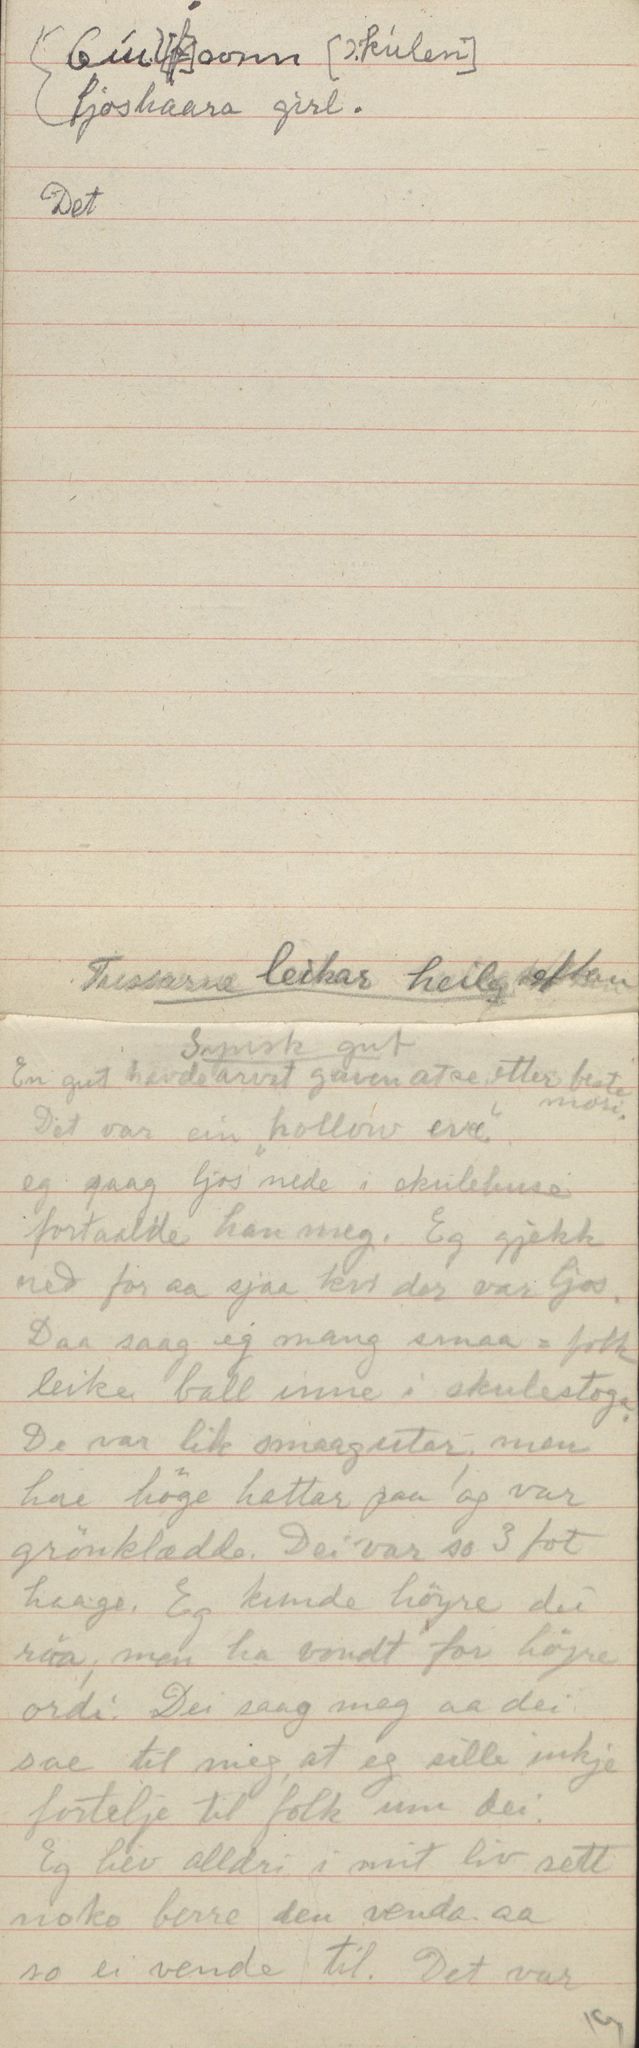 sonn [skúlen]
ljoshaara girl.
Det
Tussarne leikar heilg eftan
Synsk gut
En gut havde arvet gaven at se etter beste
mori.
Det var ein "hollow eve"
eg saag ljos nede i skulehuse
fortaalde han meg. Eg gjekk
ned for aa sjaa kvi der var ljos.
Daa saag eg mang smaa = folk
leika ball inne i skulestoga.
De var lik smaagutar, men
hae höge hattar paa og var
grönklædde. Dei var so 3 fot
haage. Eg kunde höyre dei
röa, men ha vondt for höyre
ordi. Dei saag meg aa dei
sae til meg, at eg sille inkje
fortelje til folk um dei.
Eg hev alldri i mit liv sett
noko berre den venda aa
so ei vende til. Det var